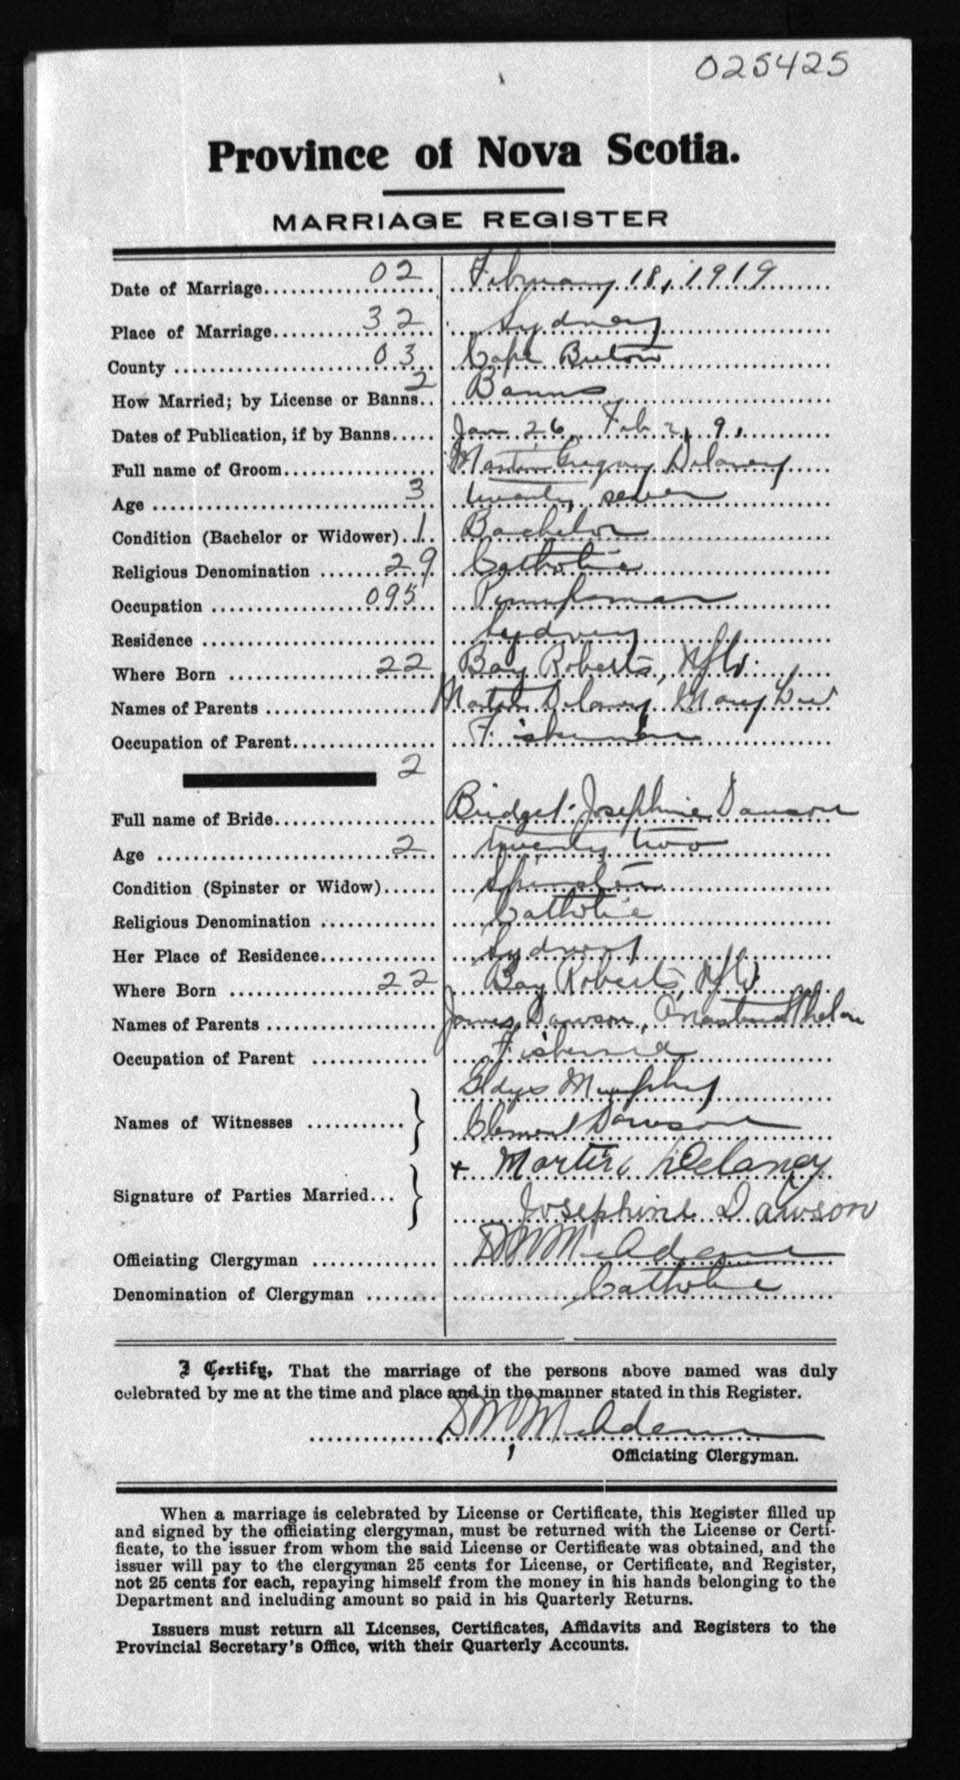 025425
Province of Nova Scotia.
MARRIAGE REGISTER
Date of Marriage 02 February 18, 1919
Place of Marriage 32 Sydney
County 03 Cape Breton
How Married; by License or Banns 2 Banns
Dates of Publication, if by Banns Jan 26, Feb 2, 9,
Full name of Groom Martin Gregory Delaney
Age 3 twenty seven
Condition (Bachelor or Widower) 1 Bachelor
Religious Denomination 29 Catholic
Occupation 095 Pumpsman
Residence Sydney
Where Born 22 Bay Roberts, Nfld.
Names of Parents Martin Delaney, Mary
Occupation of Parent Fisherman
2
Full name of Bride Bridget Josephine Dawson
Age 2 twenty two
Condition (Spinster or Widow) Spinster
Religious Denomination Catholic
Her Place of Residence Sydney
Where Born 22 Bay Roberts, Nfld.
Names of Parents James Dawson, Anastasia Phelan
Occupation of Parent Fisherman
Gladys Murphy
Names of Witnesses
Clement Dawson
+ Martin Delaney
Signature of Parties Married
Josephine Dawson
Officiating Clergyman D M McAdam
Denomination of Clergyman Catholic
I Certify, That the marriage of the persons above named was duly
celebrated by me at the time and place and in the manner stated in this Register.
D M McAdam
Officiating Clergyman.
When a marriage is celebrated by License or Certificate, this Register filled up
and signed by the officiating clergyman, must be returned with the License or Certi-
ficate, to the issuer from whom the said License or Certificate was obtained, and the
issuer will pay to the clergyman 25 cents for License, or Certificate, and Register,
not 25 cents for each, repaying himself from the money in his hands belonging to the
Department and including amount so paid in his Quarterly Returns.
Issuers must return all Licenses, Certificates, Affidavits and Registers to the
Provincial Secretary's Office, with their Quarterly Accounts.